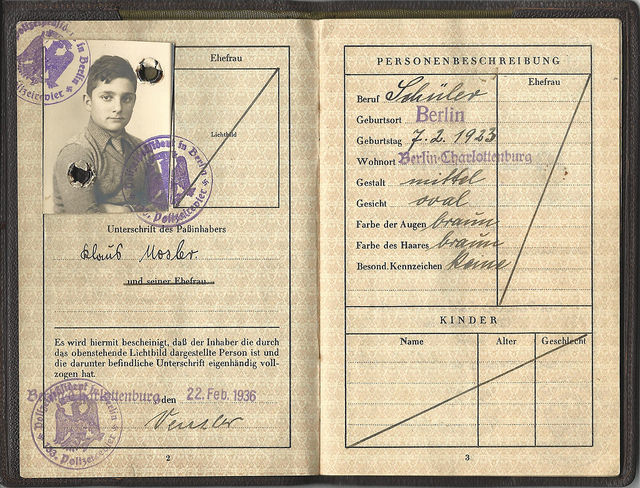 Polizeipräsident in Berlin
Polizeirevier
Ehefrau
Lichtbild
Polizeipräsident in Berlin
Polizeirevier
Unterschrift des Paßinhabers
Klaus Mosler.
und seiner Ehefrau
Es wird hiermit bescheinigt, daß der Inhaber die durch
das obenstehende Lichtbild dargestellte Person ist und
die darunter befindliche Unterschrift eigenhändig voll-
zogen hat.
Berlin-Charlottenburg, den 22. Feb. 1936
Polizeipräsident in Berlin
2
PERSONENBESCHREIBUNG
Ehefrau
Beruf Schüler
Geburtsort Berlin
Geburtstag 7. 2. 1923
Wohnort Berlin-Charlottenburg
Gestalt mittel
Gesicht oval
Farbe der Augen braun
Farbe des Haares braun
Besond. Kennzeichen keine
KINDER
Name Alter Geschlecht
3